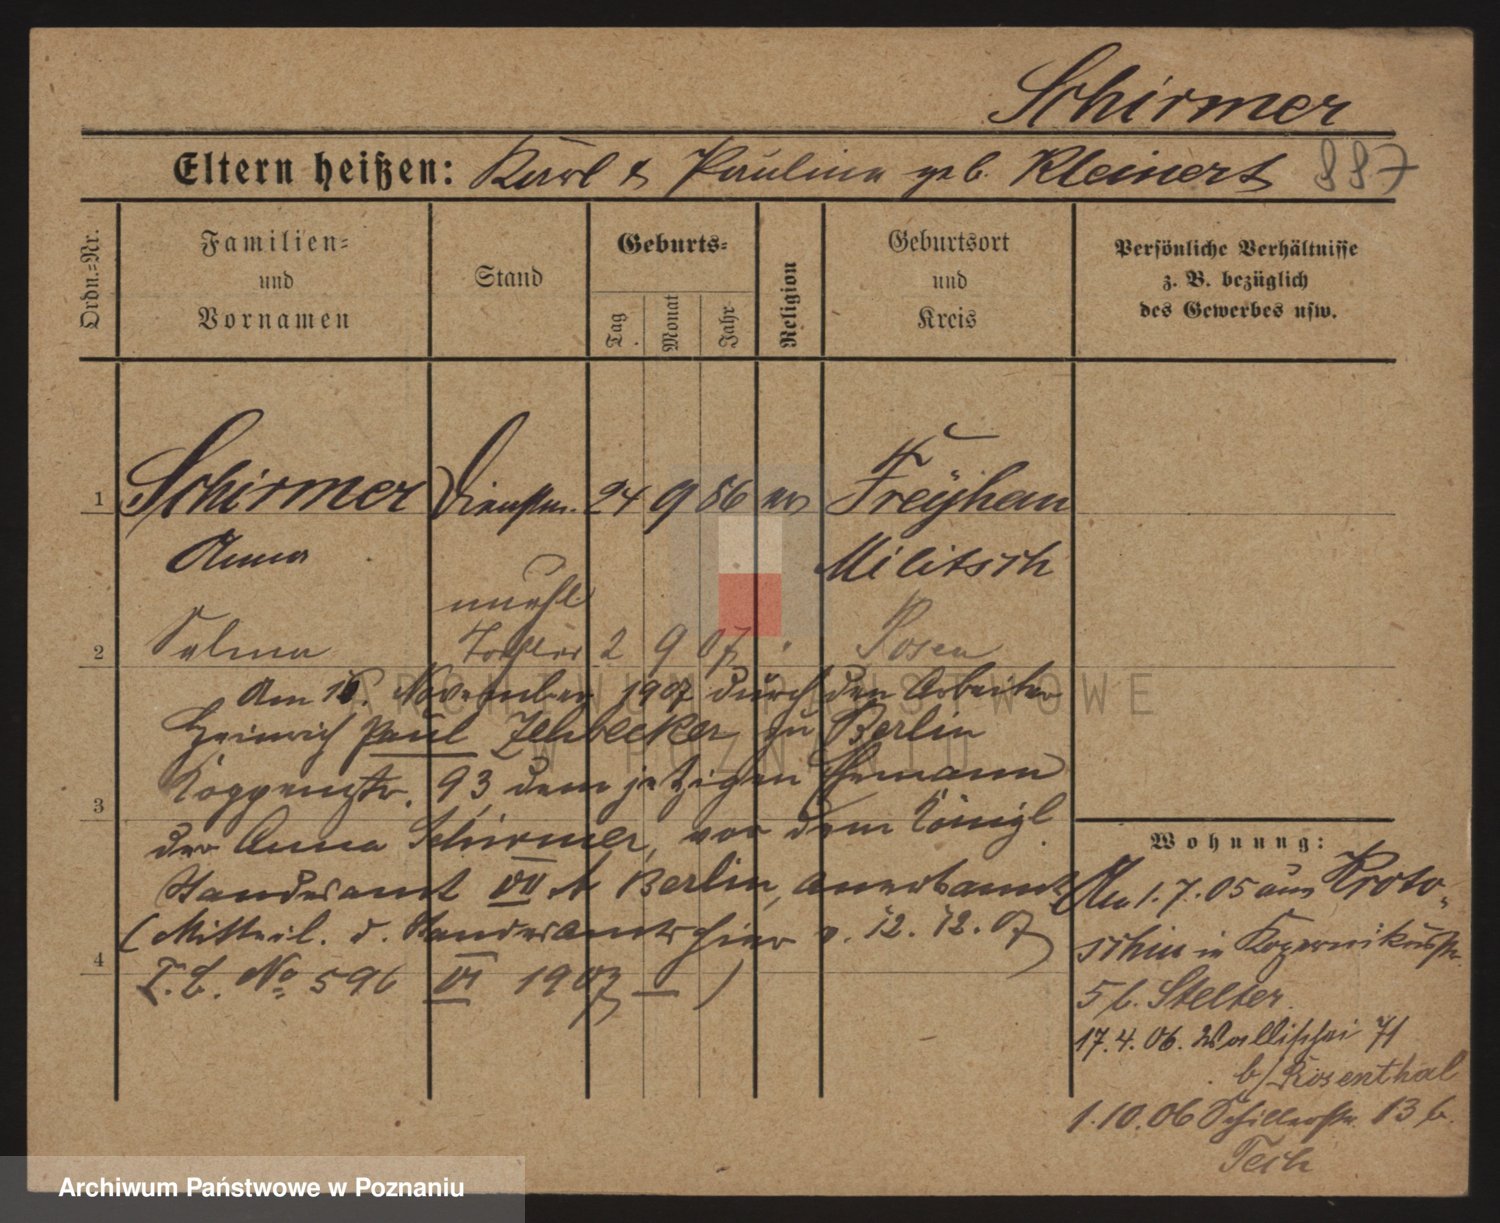 Schirmer
Eltern heißen: Karl & Pauline geb. Kleinert 887
Ordn.=Nr.
Familien=
und
Vornamen
Stand
Geburts=
Tag
Monat
Jahr
Religion
Geburtsort
und
Kreis
Persönliche Verhältnisse
z. B. bezüglich
des Gewerbes usw.
1 Schirmer Dienstm. 24 9 86 ev Freyhan
Anna Militsch
unehl
2 Selma Tochter 2 9 07 Posen
Am 16. November 1907 durch den Arbeiter
Heinrich Paul Zehbecker zu Berlin
Koppenstr. 93, dem jetzigen Ehemann
3
der Anna Schirmer, vor dem Königl.
Standesamt VII A Berlin, anerkannt
(Mitteil. d. Standesamts hier v. 12. 12. 07
4 I. C. No 596 VI 1907 — )
Wohnung:
Am 1.7.05 aus Kroto-
schin in Kopernikusstr.
5 b. Stelter.
17.4.06. Wallischei 71
b/ Rosenthal
1.10.06 Schillerstr. 13 b.
Tech
ARCHIWUM PAŃSTWOWE
W POZNANIU
Archiwum Państwowe w Poznaniu